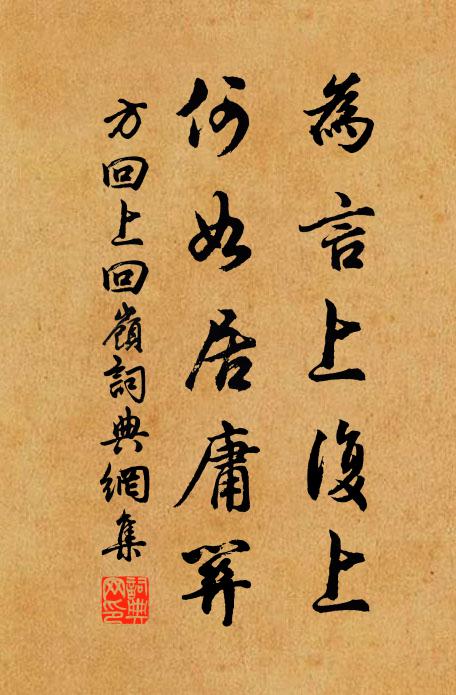 為言上復上
何如居庸關
方回上回嶺詞典網集
詞典
网印